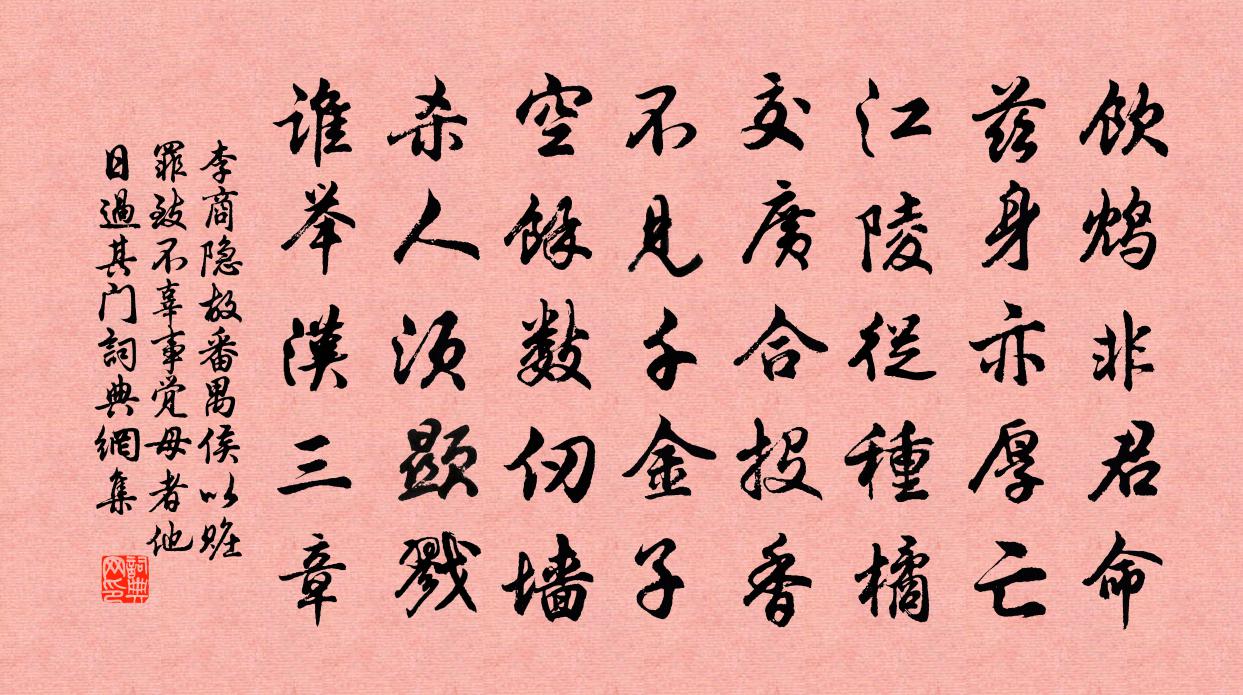 飲鸩非君命
茲身亦厚亡
江陵從種橘
交廣合投香
不見千金子
空餘數仞墻
杀人須顯戮
誰举漢三章
李商隐故番禺侯以贓
罪致不辜事觉母者他
日過其门詞典網集